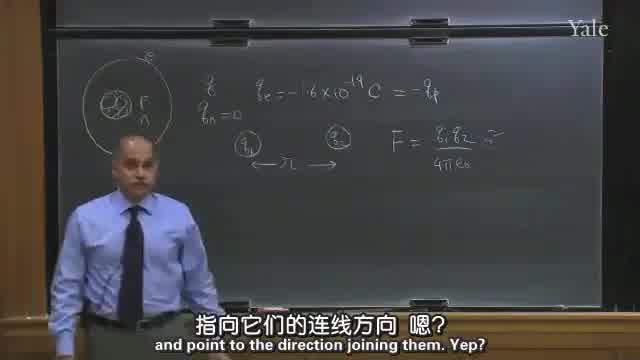 Yale
e
q qe = -1.6 × 10^-19 C = -qp
P
n
qn = 0
q1 q2
← r →
F = q1 q2 / 4πε0
指向它们的连线方向 嗯?
and point to the direction joining them. Yep?